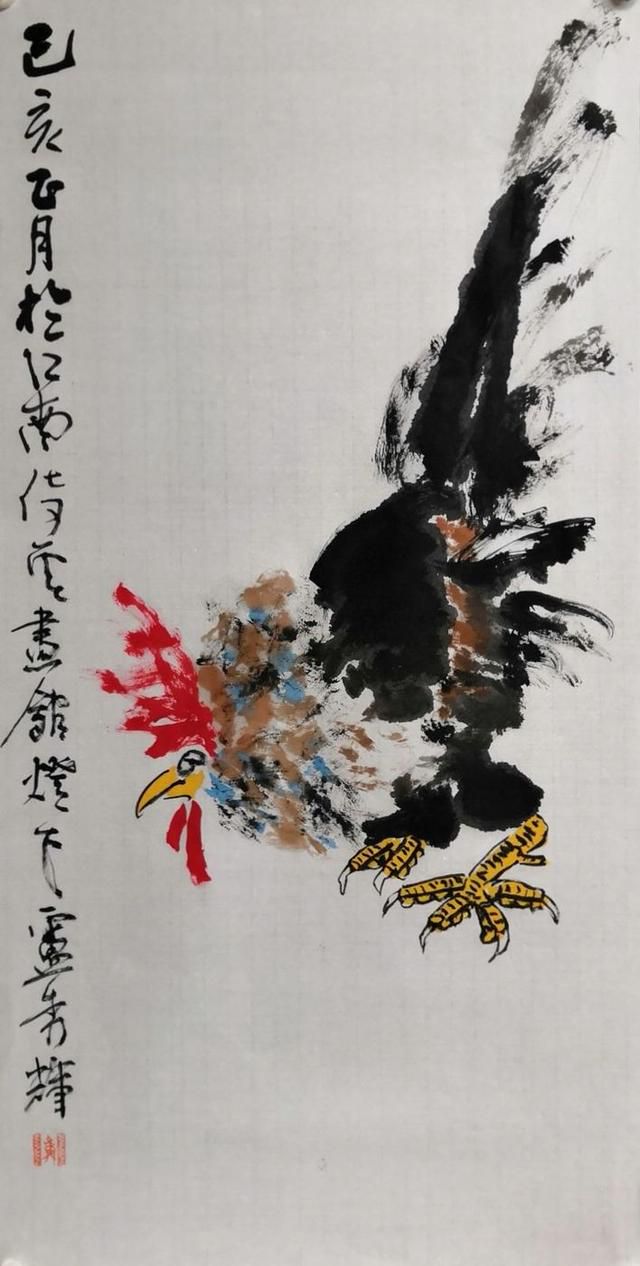 己亥正月於江南云畫館燈下盧秀輝